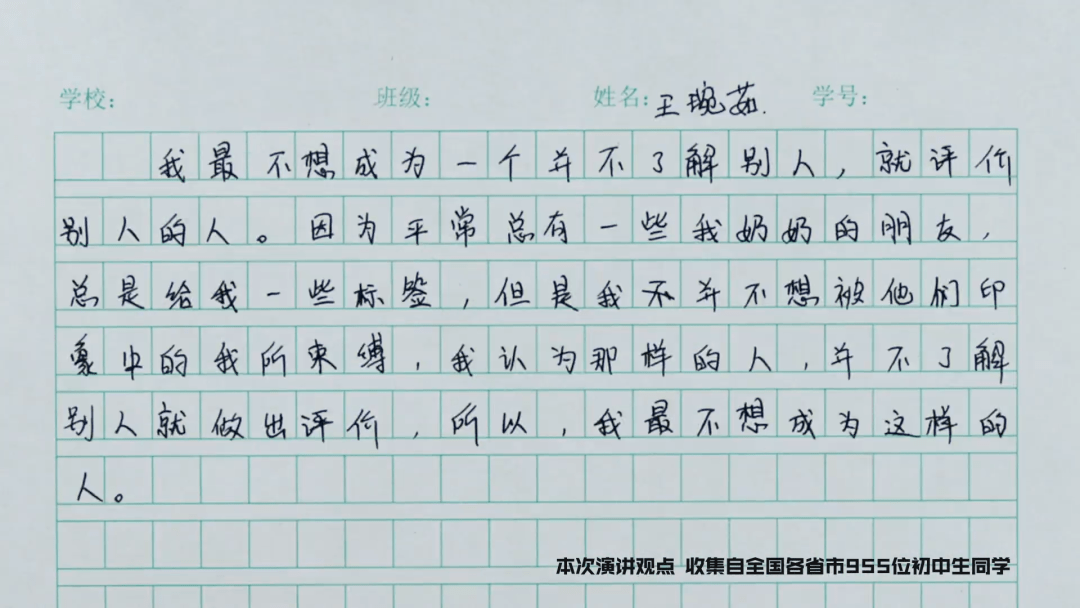 学校： 班级： 姓名：王琬茹. 学号：
我最不想成为一个并不了解别人，就评价
别人的人。因为平常总有一些我奶奶的朋友，
总是给我一些标签，但是我不并不想被他们印
象中的我所束缚，我认为那样的人，并不了解
别人就做出评价，所以，我最不想成为这样的
人。
本次演讲观点 收集自全国各省市955位初中生同学